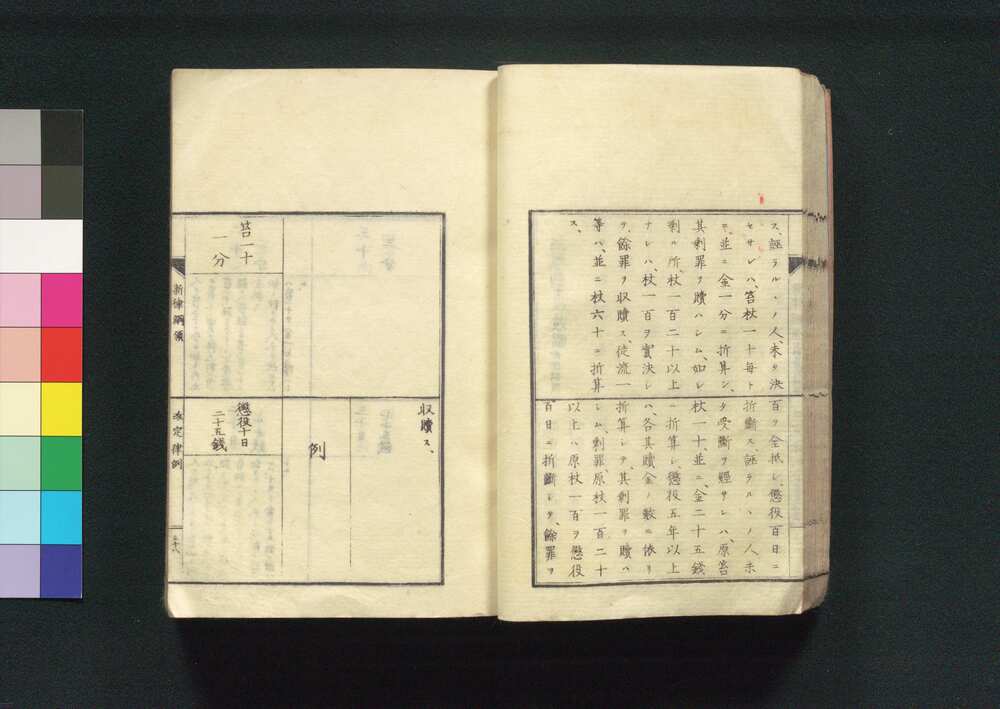 ス、誣ラルヽノ人、未タ決
セサレハ、笞杖一十毎ト
ニ、並ニ金一分ニ折算シ、
其剰罪ヲ贖ハシム、如シ
剰ル所、杖一百二十以上
ナレハ、杖一百ヲ實決シ
テ、餘罪ヲ収贖ス、徒流一
等ハ、並ニ杖六十ニ折算
ス、
百ヲ全抵シ、懲役百日ニ
折斷ス、誣ラルヽノ人未
タ受斷ヲ經サレハ、原笞
杖一十、並ニ金二十五錢
ニ折算シ、懲役五年以上
ハ、各其贖金ノ數ニ依リ
折算シテ、其剰罪ヲ贖ハ
シム、剰罪、原杖一百二十
以上ハ原杖一百ヲ懲役
百日ニ折斷シテ、餘罪ヲ
収贖ス、
例
笞一十
一分
懲役十日
二十五錢
新律綱領
改定律例